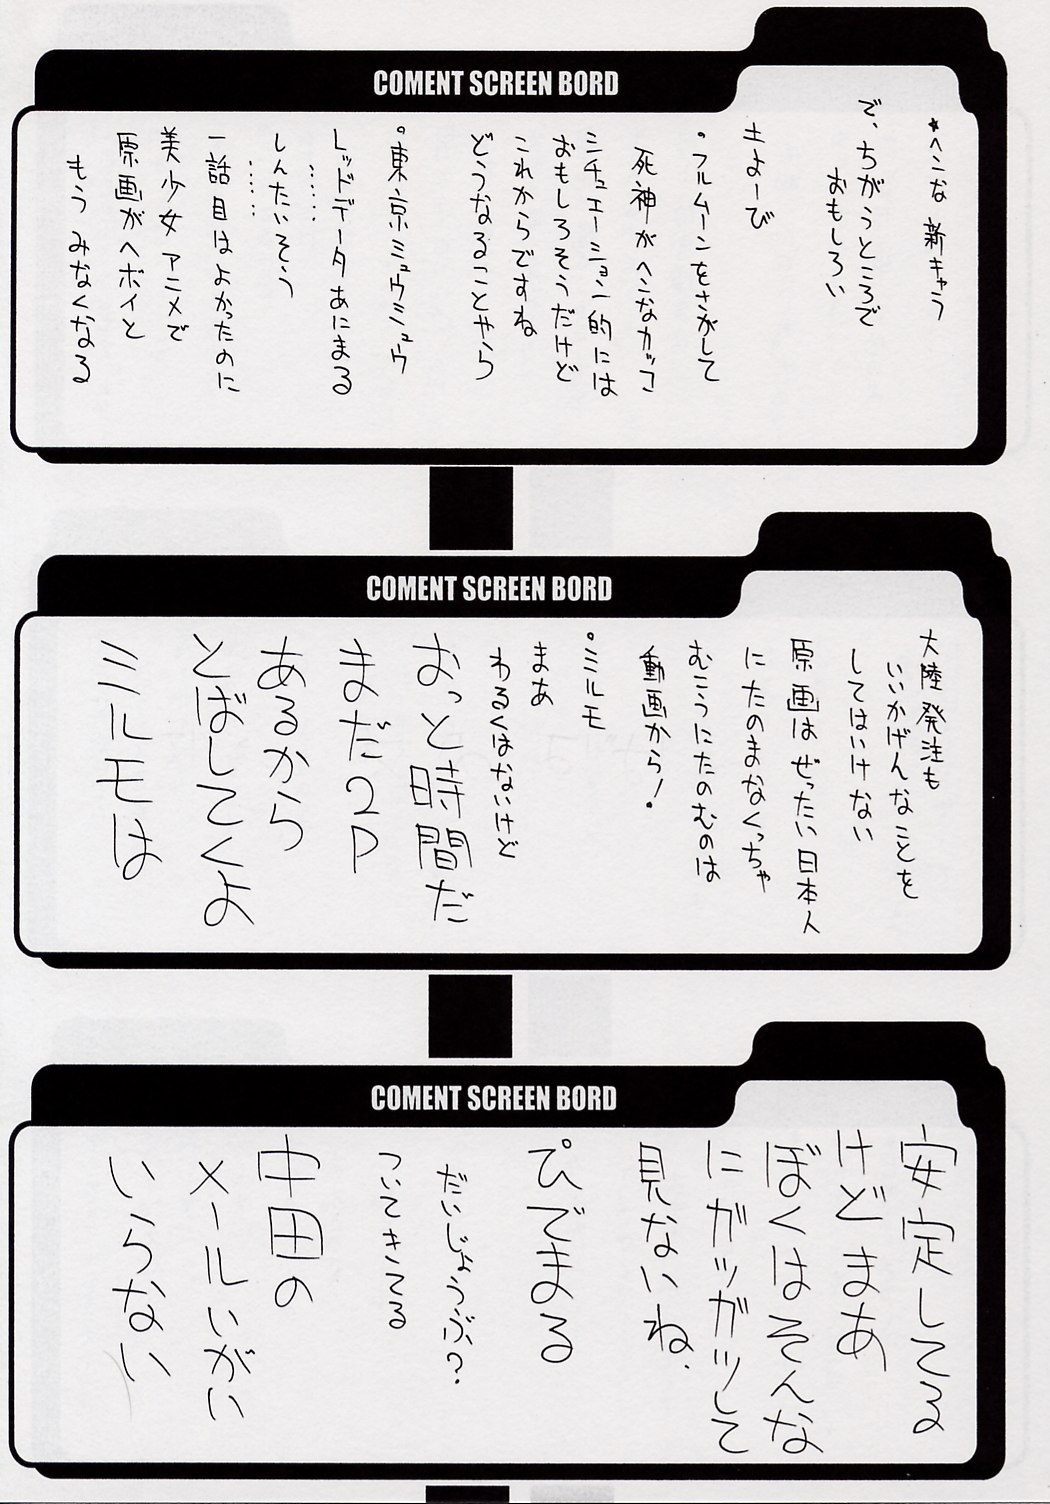 COMENT SCREEN BORD
★へこな新キャラ
で、ちがうところで
おもしろい
土よーび
・フルムーンをさがして
死神がへこなカッコ
シチュエーション的には
おもしろそうだけど
これからですね
どうなることやら
。東京ミュウミュウ
レッドデータあにまる
しんたいそう
一話目はよかったのに
美少女アニメで
原画がヘボイと
もうみなくなる
COMENT SCREEN BORD
大陸発注も
いいかげんなことを
してはいけない
原画はぜったい日本人
にたのまなくっちゃ
むこうにたのむのは
動画から!
。ミルモ
まあ
わるくはないけど
おっと時間だ
まだ2P
あるから
とばしてくよ
ミルモは
COMENT SCREEN BORD
安定してる
けどまあ
ぼくはそんな
にガッガッして
見ないね、
ぴでまる
だいじょうぶ?
ついてきてる
中田の
メールいがい
いらない